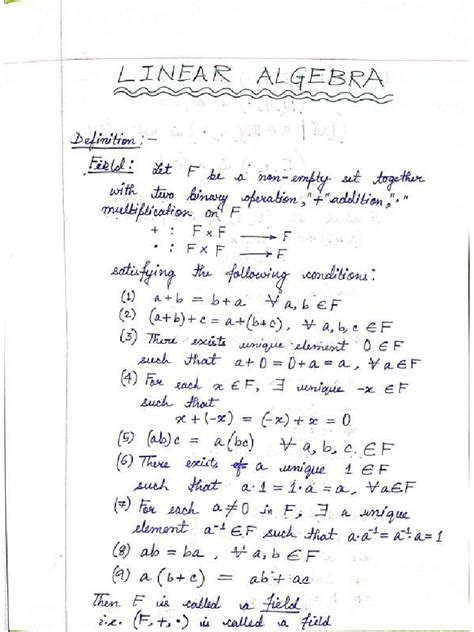 LINEAR ALGEBRA
Definition :-
Field : Let F be a non-empty set together
with two binary operation, "+" addition, "."
multiplication on F
+ : F×F → F
• : F×F → F
satisfying the following conditions :
(1) a+b = b+a ∀ a, b ∈ F
(2) (a+b)+c = a+(b+c), ∀ a, b, c ∈ F
(3) There exists unique element 0 ∈ F
such that a+0 = 0+a = a, ∀ a ∈ F
(4) For each x ∈ F, ∃ unique -x ∈ F
such that
x+(-x) = (-x)+x = 0
(5) (ab)c = a(bc) ∀ a, b, c ∈ F
(6) There exists a unique 1 ∈ F
such that a·1 = 1·a = a, ∀ a ∈ F
(7) For each a≠0 in F, ∃ a unique
element a⁻¹ ∈ F such that a·a⁻¹ = a⁻¹·a = 1
(8) ab = ba, ∀ a, b ∈ F
(9) a(b+c) = ab + ac
Then F is called a field
i.e. (F, +, •) is called a field